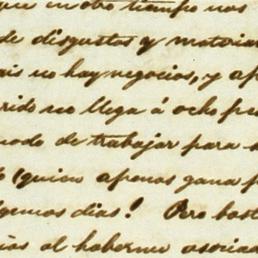 en otro tiempo nos
de disgustos y materia
no hay negocios, y a
no llega á ocho pe
modo de trabajar para
(quien apenas gana p
días! Pero bast
al haberme asociad